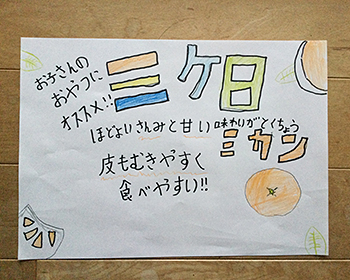 お子さんの
おやつに
オススメ!!
三ケ日
ほどよいさんみと甘い味わりがとくちょう
ミカン
皮もむきやすく
食べやすい!!